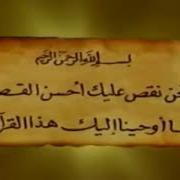 بسم الله الرحمن الرحيم
نحن نقص عليك أحسن القصص
بما أوحينا إليك هذا القرآن